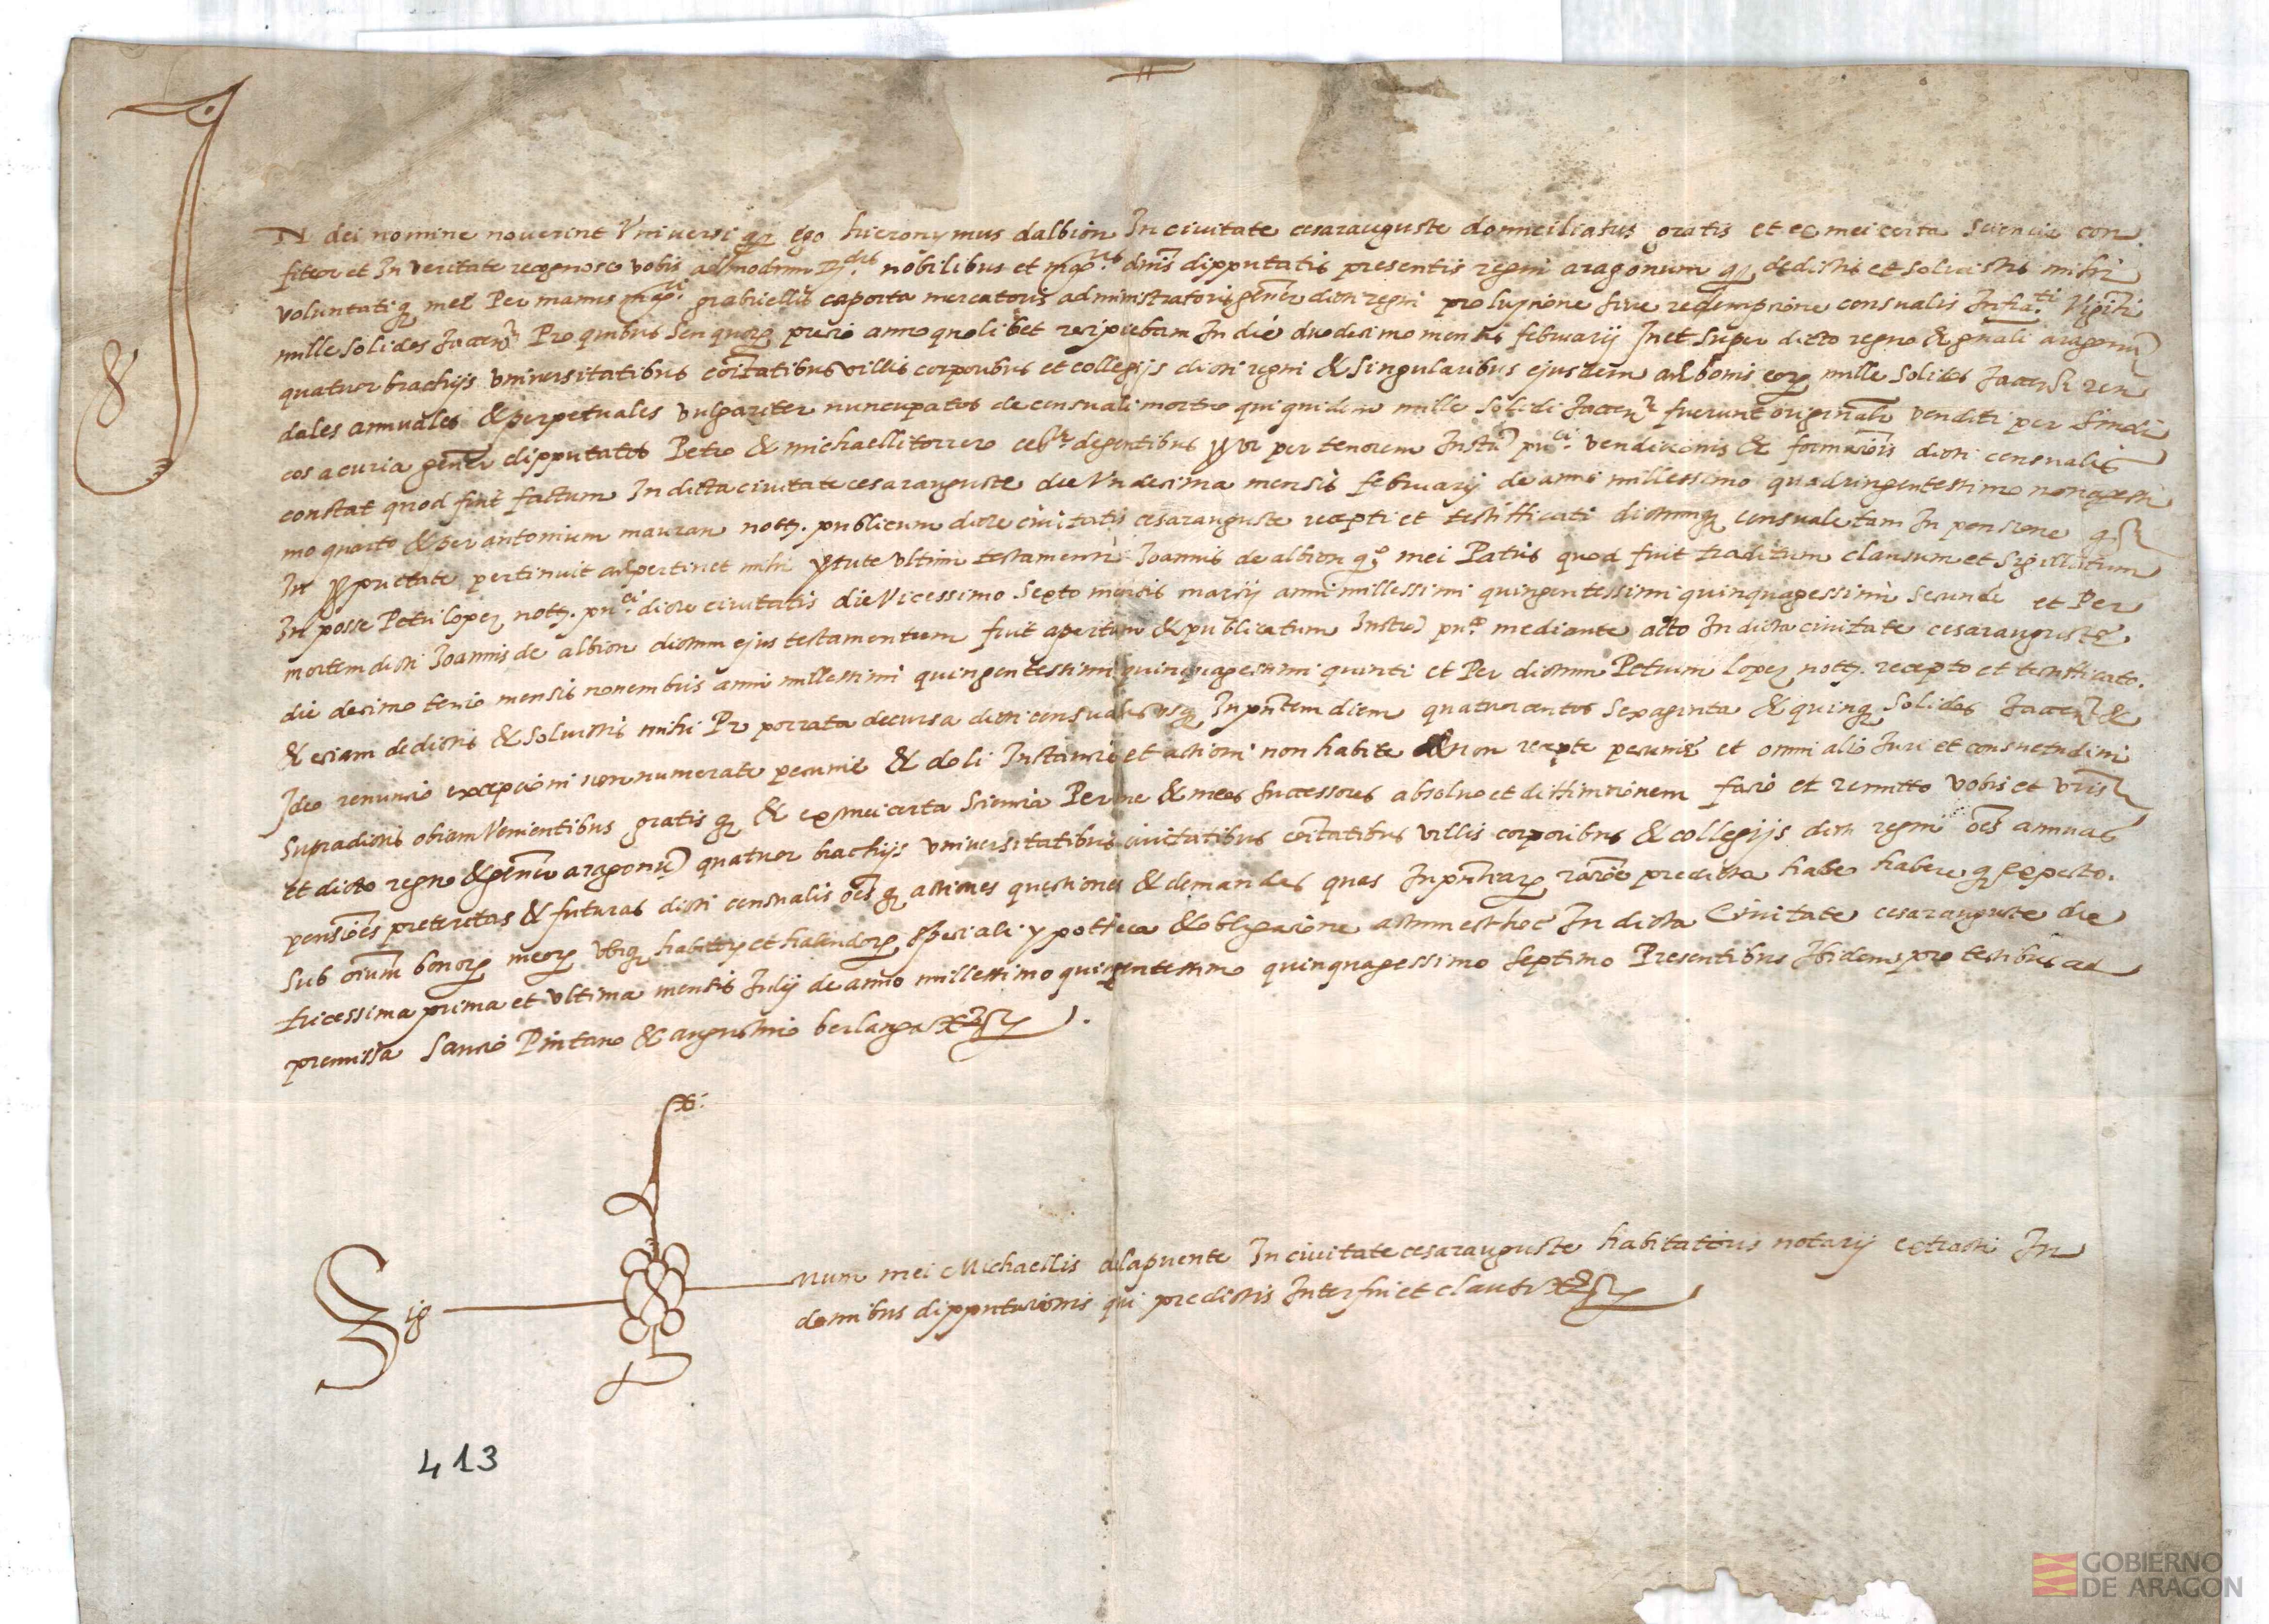 IN dei nomine noverint Vniversi qz ego hieronymus dalbion In ciuitate cesarauguste domiciliatus gratis et ex mei certa sciencia con
fiteor et In veritate recognosco vobis admodum nobilibus et dnis dipputatis presentis regni aragonum qz dedistis et soluistis mihi
voluntatiqz mee Per manus gabriellis caporta mercatoris administratoris gener dicti regni pro luytione sive redemptione censualis Infra.ti Viginti
mille solidos Jaccen Pro quibus seu quorz precio anno quolibet recipiebam In die duodecimo mensis februarij In et super dicto regno & gnali aragonu
quatuor brachijs vniversitatibus villis corporibus et collegijs dicti regni & singularibus ejusdem ad bonis eorz mille solidos Jaccen ren
dales annuales & perpetuales vulgariter nuncupatos de censuali mortuo qui quidem mille solidi Jaccen fuerunt originali venditi per sindi
cos a curia gener dipputatos Petro & michaelli torrero degentibus vt per tenorem Instru vendicionis & dicti censualis
constat quod fuit factum In dicta ciuitate cesarauguste die Vndecima mensis februarij de anno millessimo quadringentessimo nonagessi
mo quarto & per antonium mauran nott. publicum dicte ciuitatis cesarauguste recepti et testifficati dictumqz censuale tam In pensione q
In pprietate pertinuit ac pertinet mihi vtute vltimi testamenti Joannis de albion qo mei Patris quod fuit traditum clausum et sigillatum
In posse Petri lopez nott. dicte ciuitatis die Vicessimo sexto mensis marcij anni millessimi quingentessimi quinquagessimi secundi et Per
mortem dicti Joannis de albion dictum ejus testamentum fuit apertum & publicatum Instru mediante acto In dicta ciuitate cesarauguste
die decimo tercio mensis nouembris anni millessimi quingentessimi quinquagessimi quinti et Per dictum Petrum lopez nott. recepto et testifficato.
& eciam dedistis & soluistis mihi Pr porrata decursa dicti censualis usqz In pntem diem quatuorcentos sexaginta & quinqz solidos Jaccen &
Ideo renuncio excepcioni non numerate pecunie & doli Instancie et actioni non habite & non recepte pecunie et omni alio Juri et consuetudini
supradictis obiam Venientibus gratis qz & ex mei certa sciencia Per me & meos successores absoluo et diffinicionem facio et remitto vobis et vris
et dicto regno & gener aragonu quatuor brachijs vniversitatibus ciuitatibus villis corporibus & collegijs dicti regni oes annuas
pensiones preteritas & futuras dicti censualis oes qz actiones questiones & demandas quas In pntiarz racione predicta habeo habereqz expecto.
sub oium bonorz meorz vbiqz habitorz et habendorz speciali ypotteca & obligacione actum est hoc In dicta Ciuitate cesarauguste die
tricessima prima et vltima mensis Julij de anno millessimo quingentessimo quinquagessimo septimo Presentibus Ibidem pro testibus ad
premissa sancio Pintano & augustino berlanga
Sig
num mei Michaellis alapuente In ciuitate cesarauguste habitatoris notarij extracti In
domibus dipputacionis qui predictis Interfui et clausi
413
GOBIERNO
DE ARAGON